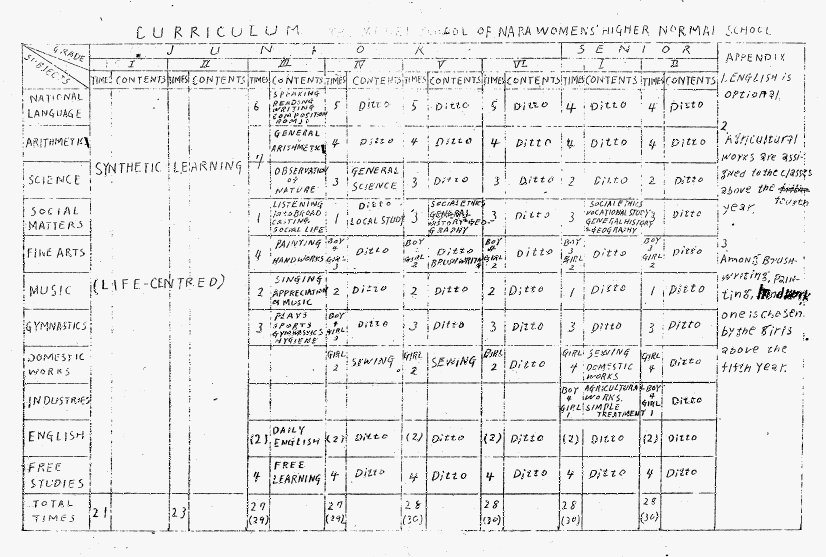 CURRICULUM THE MODEL SCHOOL OF NARA WOMENS' HIGHER NORMAL SCHOOL
GRADE
SUBJECTS
JUNIOR SENIOR APPENDIX
I II III IV V VI I II
TIMES CONTENTS TIMES CONTENTS TIMES CONTENTS TIMES CONTENTS TIMES CONTENTS TIMES CONTENTS TIMES CONTENTS TIMES CONTENTS
NATIONAL LANGUAGE 6 SPEAKING READING WRITING COMPOSITION 5 Ditto 5 Ditto 5 Ditto 4 Ditto 4 Ditto
ARITHMETIC GENERAL ARISHMETIC 4 Ditto 4 Ditto 4 Ditto 4 Ditto 4 Ditto
SYNTHETIC LEARNING
SCIENCE OBSERVATION OF NATURE 3 GENERAL SCIENCE 3 Ditto 3 Ditto 2 Ditto 2 Ditto
SOCIAL MATTERS 1 LISTENING SOCIAL LIFE 1 Ditto LOCAL STUDY 3 SOCIAL ETHICS GENERAL HISTORY GEOGRAPHY 3 Ditto 3 SOCIAL ETHICS VOCATIONAL STUDY GENERAL HISTORY & GEOGRAPHY 3 Ditto
FINE ARTS 4 PAINTING HANDWORKS BOY 4 GIRL 3 Ditto BOY GIRL 2 Ditto BRUSH WRITING BOY 4 GIRL 2 Ditto BOY 3 GIRL 2 Ditto BOY 3 GIRL 2 Ditto
(LIFE-CENTRED)
MUSIC 2 SINGING APPRECIATION OF MUSIC 2 Ditto 2 Ditto 2 Ditto 1 Ditto 1 Ditto
GYMNASTICS 3 PLAYS SPORTS GYMNASTICS HYGIENE BOY 4 GIRL 3 Ditto 3 Ditto 3 Ditto 3 Ditto 3 Ditto
DOMESTIC WORKS GIRL 2 SEWING GIRL 2 SEWING GIRL 2 Ditto GIRL 4 SEWING DOMESTIC WORKS GIRL 4 Ditto
INDUSTRIES BOY 4 GIRL 1 AGRICULTURAL WORKS. SIMPLE TREATMENT BOY 4 GIRL 1 Ditto
ENGLISH (2) DAILY ENGLISH (2) Ditto (2) Ditto (2) Ditto (2) Ditto (2) Ditto
FREE STUDIES 4 FREE LEARNING 4 Ditto 4 Ditto 4 Ditto 4 Ditto 4 Ditto
TOTAL TIMES 21 23 27 (29) 27 (29) 28 (30) 28 (30) 28 (30) 28 (30)
1. ENGLISH is
OPTIONAL.
2
Agricultural
works are assi-
gned to the classes
above the
fourth
year.
3
Among Brush-
writing, Pain-
ting, handwork
one is chosen
by the girls
above the
fifth year.